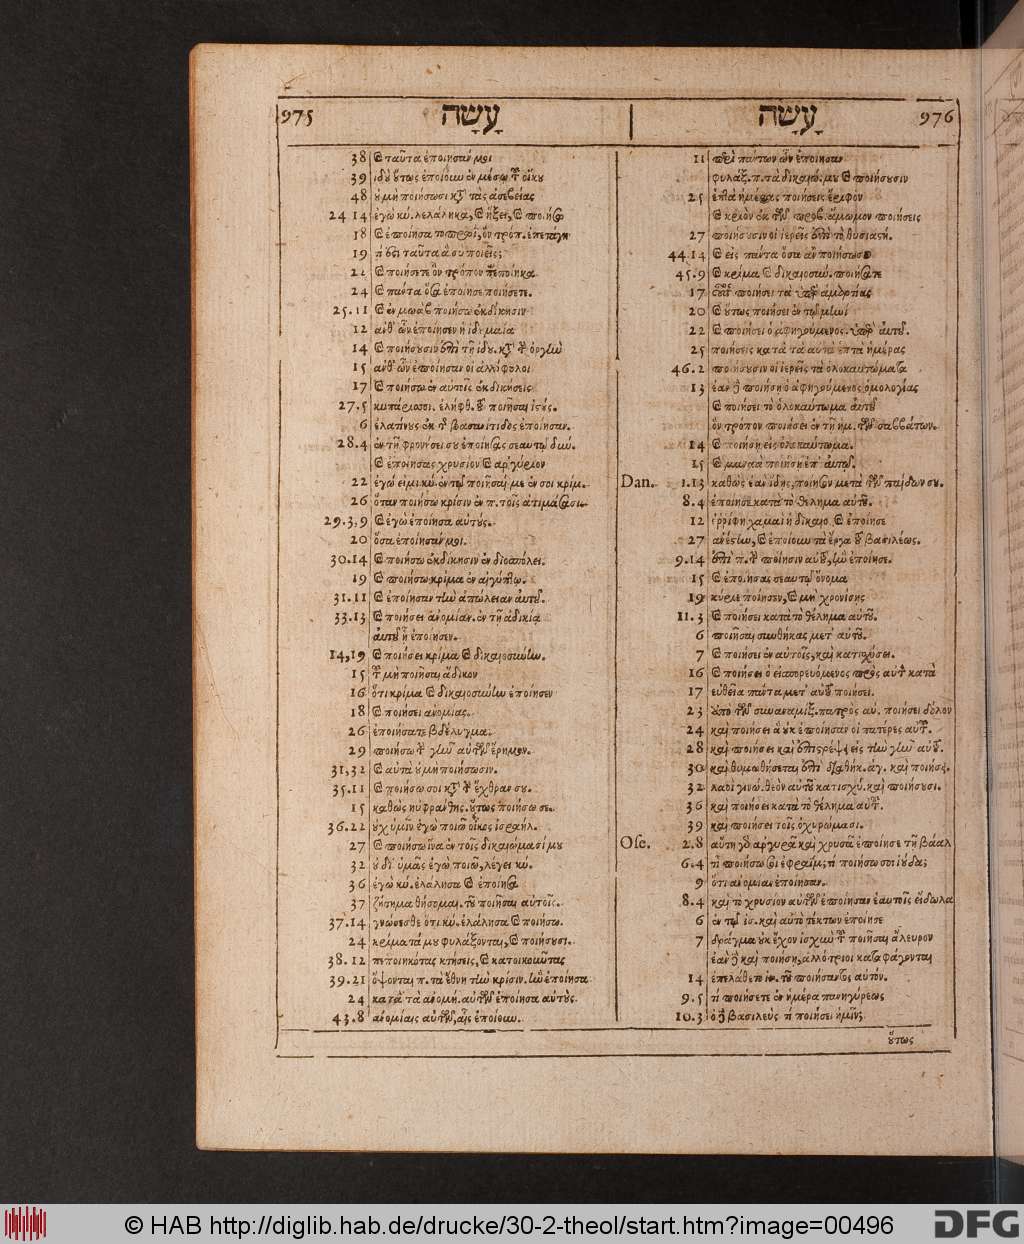 975 עָשָׂה
38 Ꞓ ταῦτα ἐποίησάν μοι
39 ἰδοὺ ὕτως ἐποίουν ἐν μέσῳ τ οἴκου
48 οὐ μὴ ποιήσωσι κτ τὰς ἀσεβείας
24 14 ἐγὼ κύ. λελάληκα, Ꞓ ἥξει, Ꞓ ποιήσω
18 Ꞓ ἐποίησα τὸ πρωὶ, ὃν τρόπ. ἐπετάγη
19 τί ὅτι ταῦτα ἃ σὺ ποιεῖς;
22 Ꞓ ποιήσετε ὃν τρόπον πεποίηκα
24 Ꞓ πάντα ὅσα ἐποίησε ποιήσετε.
25.11 Ꞓ ἐν μωὰβ ποιήσω ἐκδίκησιν
12 ἀνθ' ὧν ἐποίησεν ἡ ἰδυμαία
14 Ꞓ ποιήσουσιν ἐπὶ τῇ ἰδυ. κτ τ ὀργίω
15 ἀνθ' ὧν ἐποίησαν οἱ ἀλλόφυλοι
17 Ꞓ ποιήσω ἐν αὐτοῖς ἐκδικήσεις
27.5 κυπάρισσοι. ἐλήφθ. τ ποιῆσαι ἱστύς.
6 ἐλατίνυς ἐκ τ βασανίτιδος ἐποίησαν.
28.4 ἐν τῇ φρονήσει σου ἐποίησας σεαυτῷ δυύ.
Ꞓ ἐποίησας χρυσίον Ꞓ ἀργύριον
22 ἐγώ εἰμι κύ. ἐν τῷ ποιῆσαί με ἐν σοὶ κρίμ.
26 ὅταν ποιήσω κρίσιν ἐν π. τοῖς ἀτιμάσασι
29.3,9 Ꞓ ἐγὼ ἐποίησα αὐτύς.
20 ὅσα ἐποίησάν μοι.
30.14 Ꞓ ποιήσω ἐκδίκησιν ἐν διοσπόλει.
19 Ꞓ ποιήσω κρίμα ἐν αἰγύπτῳ.
31.11 Ꞓ ἐποίησαν τὼ ἀπώλειαν αὐτῦ.
33.13 Ꞓ ποιήσει ἀνομίαν. ἐν τῇ ἀδικίᾳ
αὐτῦ ᾗ ἐποίησεν.
14,19 Ꞓ ποιήσει κρίμα Ꞓ δικαιοσύνω.
15 τ μὴ ποιῆσαι ἄδικον
16 ὅτι κρίμα Ꞓ δικαιοσύνω ἐποίησεν
18 Ꞓ ποιήσει ἀνομίας.
26 ἐποιήσατε βδέλυγμα.
29 ποιήσω τ γῆν αὐτῶν ἔρημον.
31,32 Ꞓ αὐτὰ ὐ μὴ ποιήσωσιν.
35.11 Ꞓ ποιήσω σοι κτ τ ἔχθραν σου.
15 καθὼς ηὐφράνθης. ὕτως ποιήσω σε.
36.22 ὐχ ὑμῖν ἐγὼ ποιῶ οἶκος ἰσραήλ.
27 Ꞓ ποιήσω ἵνα ἐν τοῖς δικαιώμασί μου
32 ὐ δι' ὑμᾶς ἐγὼ ποιῶ, λέγει κύ.
36 ἐγὼ κύ. ἐλάλησα Ꞓ ἐποίησα
37 ζήτημα θήσομαι. τῦ ποιῆσαι αὐτοῖς.
37.14 γνώσεσθε ὅτι κύ. ἐλάλησα Ꞓ ποιήσω.
24 κρίματά μου φυλάξονται, Ꞓ ποιήσουσι.
38.12 πεποιηκότας κτήσεις, Ꞓ κατοικοῦντας
39.21 ὄψονται π. τὰ ἔθνη τὼ κρίσιν. ἣν ἐποίησα
24 κατὰ τὰ ἀνομή. αὐτῶν ἐποίησα αὐτύς.
43.8 ἀνομίαις αὐτῶν, αἷς ἐποίουν.
עָשָׂה 976
11 περὶ πάντων ὧν ἐποίησαν
φυλάξ. π. τὰ δικαιώ. μου Ꞓ ποιήσουσιν
25 ἑπτὰ ἡμέρας ποιήσεις ἔριφον
Ꞓ κριὸν ἐκ τῶν προβ. ἄμωμον ποιήσεις
27 ποιήσουσιν οἱ ἱερεῖς ἐπὶ τὸ θυσιαστή.
44.14 Ꞓ εἰς πάντα ὅσα ἂν ποιήσωσι
45.9 Ꞓ κρίμα Ꞓ δικαιοσύ. ποιήσατε
17 αὐτὸς ποιήσει τὰ ὑπὲρ ἁμαρτίας
20 Ꞓ ὕτως ποιήσει ἐν τῷ μίωὶ
22 Ꞓ ποιήσει ὁ ἀφηγούμενος. ὑπὲρ αὐτῦ.
25 ποιήσεις κατὰ τὰ αὐτὰ ἑπτὰ ἡμέρας
46.2 ποιήσουσιν οἱ ἱερεῖς τὰ ὁλοκαυτώματα
13 ἐὰν δὲ ποιήσῃ ὁ ἀφηγούμενος ὁμολογίας
Ꞓ ποιήσει τὸ ὁλοκαύτωμα αὐτῦ
ὃν τρόπον ποιήσει ἐν τῇ ἡμ. τῶν σαββάτων.
14 Ꞓ ποιήσῃ εἰς ὁλοκαύτωμα.
15 Ꞓ μαναὰ ποιήσῃ ἐπ' αὐτῷ.
Dan. 1.13 καθὼς ἐὰν ἴδῃς, ποίησον μετὰ τῶν παίδων σου.
8.4 ἐποίησε κατὰ τὸ θέλημα αὐτῦ.
12 ἐρρίφη χαμαὶ ἡ δικαιο. Ꞓ ἐποίησε
27 ἀνέστην, Ꞓ ἐποίουν τὰ ἔργα τ βασιλέως.
9.14 ἐπὶ π. τ ποίησιν αὐτῦ, ἣν ἐποίησε.
15 Ꞓ ἐποίησας σεαυτῷ ὄνομα
19 κύριε ποίησον, Ꞓ μὴ χρονίσῃς
11.3 Ꞓ ποιήσει κατὰ τὸ θέλημα αὐτῦ.
6 ποιῆσαι συνθήκας μετ' αὐτῦ.
7 Ꞓ ποιήσει ἐν αὐτοῖς, καὶ κατισχύσει.
16 Ꞓ ποιήσει ὁ εἰσπορευόμενος πρὸς αὐτ κατὰ
17 εὐθεῖα πάντα μετ' αὐτῦ ποιήσει.
23 ἀπὸ τῶν συναναμίξ. πατρὸς αὐ. ποιήσει δόλον
24 καὶ ποιήσει ἃ ὐκ ἐποίησαν οἱ πατέρες αὐτ.
28 καὶ ποιήσει καὶ ἐπιστρέψει εἰς τὼ γῆν αὐτῦ.
30 καὶ θυμωθήσεται ἐπὶ διαθήκ. ἁγ. καὶ ποιήσει.
32 λαοὶ γινώ. θεὸν αὐτῦ κατισχύ. καὶ ποιήσουσι.
36 καὶ ποιήσει κατὰ τὸ θέλημα αὐτ.
39 καὶ ποιήσει τοῖς ὀχυρώμασι.
Ose. 2.8 αὕτη δὲ ἀργυρᾶ καὶ χρυσᾶ ἐποίησε τῇ βάαλ
6.4 τί ποιήσω σοι ἐφραΐμ; τί ποιήσω σοι ἰούδα;
9 ὅτι ἀνομίαν ἐποίησαν.
8.4 καὶ τὸ χρυσίον αὐτῶν ἐποίησαν ἑαυτοῖς εἴδωλα
6 ἐν τῷ ἰσ. καὶ αὐτὸ τέκτων ἐποίησε
7 δράγμα ὐκ ἔχον ἰσχὺν τ ποιῆσαι ἄλευρον
ἐὰν δὲ καὶ ποιήσῃ, ἀλλότριοι καταφάγονται
14 ἐπελάθετο ἰσ. τῦ ποιήσαντος αὐτόν.
9.5 τί ποιήσετε ἐν ἡμέρᾳ πανηγύρεως
10.3 ὁ δὲ βασιλεὺς τί ποιήσει ἡμῖν;
ὕτως
© HAB http://diglib.hab.de/drucke/30-2-theol/start.htm?image=00496
DFG